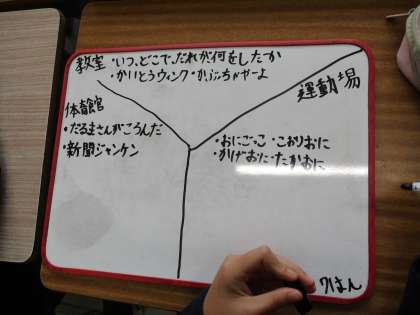 教室・いつ、どこで、だれが何をしたか
・かいとうウィンク・かぶちゃやーよ
体育館
・だるまさんがころんだ
・新聞ジャンケン
運動場
・おにごっこ・こおりおに
・かげおに・たかおに
7はん